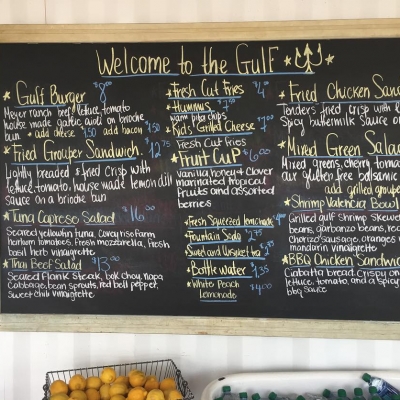 Welcome to the Gulf
Gulf Burger 8
Meyer ranch beef, lettuce, tomato
house made garlic aioli on brioche
bun • add cheese 1.50 add bacon 1.50
Fried Grouper Sandwich 12.75
Lightly breaded & fried crisp with
lettuce, tomato, house made lemon dill
sauce on a brioche bun
Tuna Caprese Salad $16.00
Seared yellowfin tuna, covey rise farm
heirloom tomatoes, fresh mozzarella, fresh
basil herb vinaigrette
Thai Beef Salad $13.00
Seared flank steak, bok choy, napa
cabbage, bean sprouts, red bell pepper,
sweet chili vinaigrette
Fresh Cut Fries $4.00
Hummus $7.50
warm pita chips
Kids Grilled Cheese $7.00
Fresh Cut Fries
Fruit Cup $6.00
Vanilla honey + clover
marinated tropical
fruits and assorted
berries
Fresh Squeezed lemonade 4.00
Fountain Soda 2.75
Sweet and Unsweet tea
Bottle water 2.35
White Peach
Lemonade $4.00
Fried Chicken Sand
Tenders fried crisp with l
Spicy buttermilk sauce on
Mixed Green Salad
Mixed greens, cherry tomato
gluten free balsamic
add grilled grouper
Shrimp Valencia Bowl
Grilled gulf shrimp skewer
beans, garbanzo beans, red
chorizo sausage, oranges
mandarin vinaigrette
BBQ Chicken Sandwic
Ciabatta bread, crispy on
lettuce, tomato, and a spicy
bbq sauce